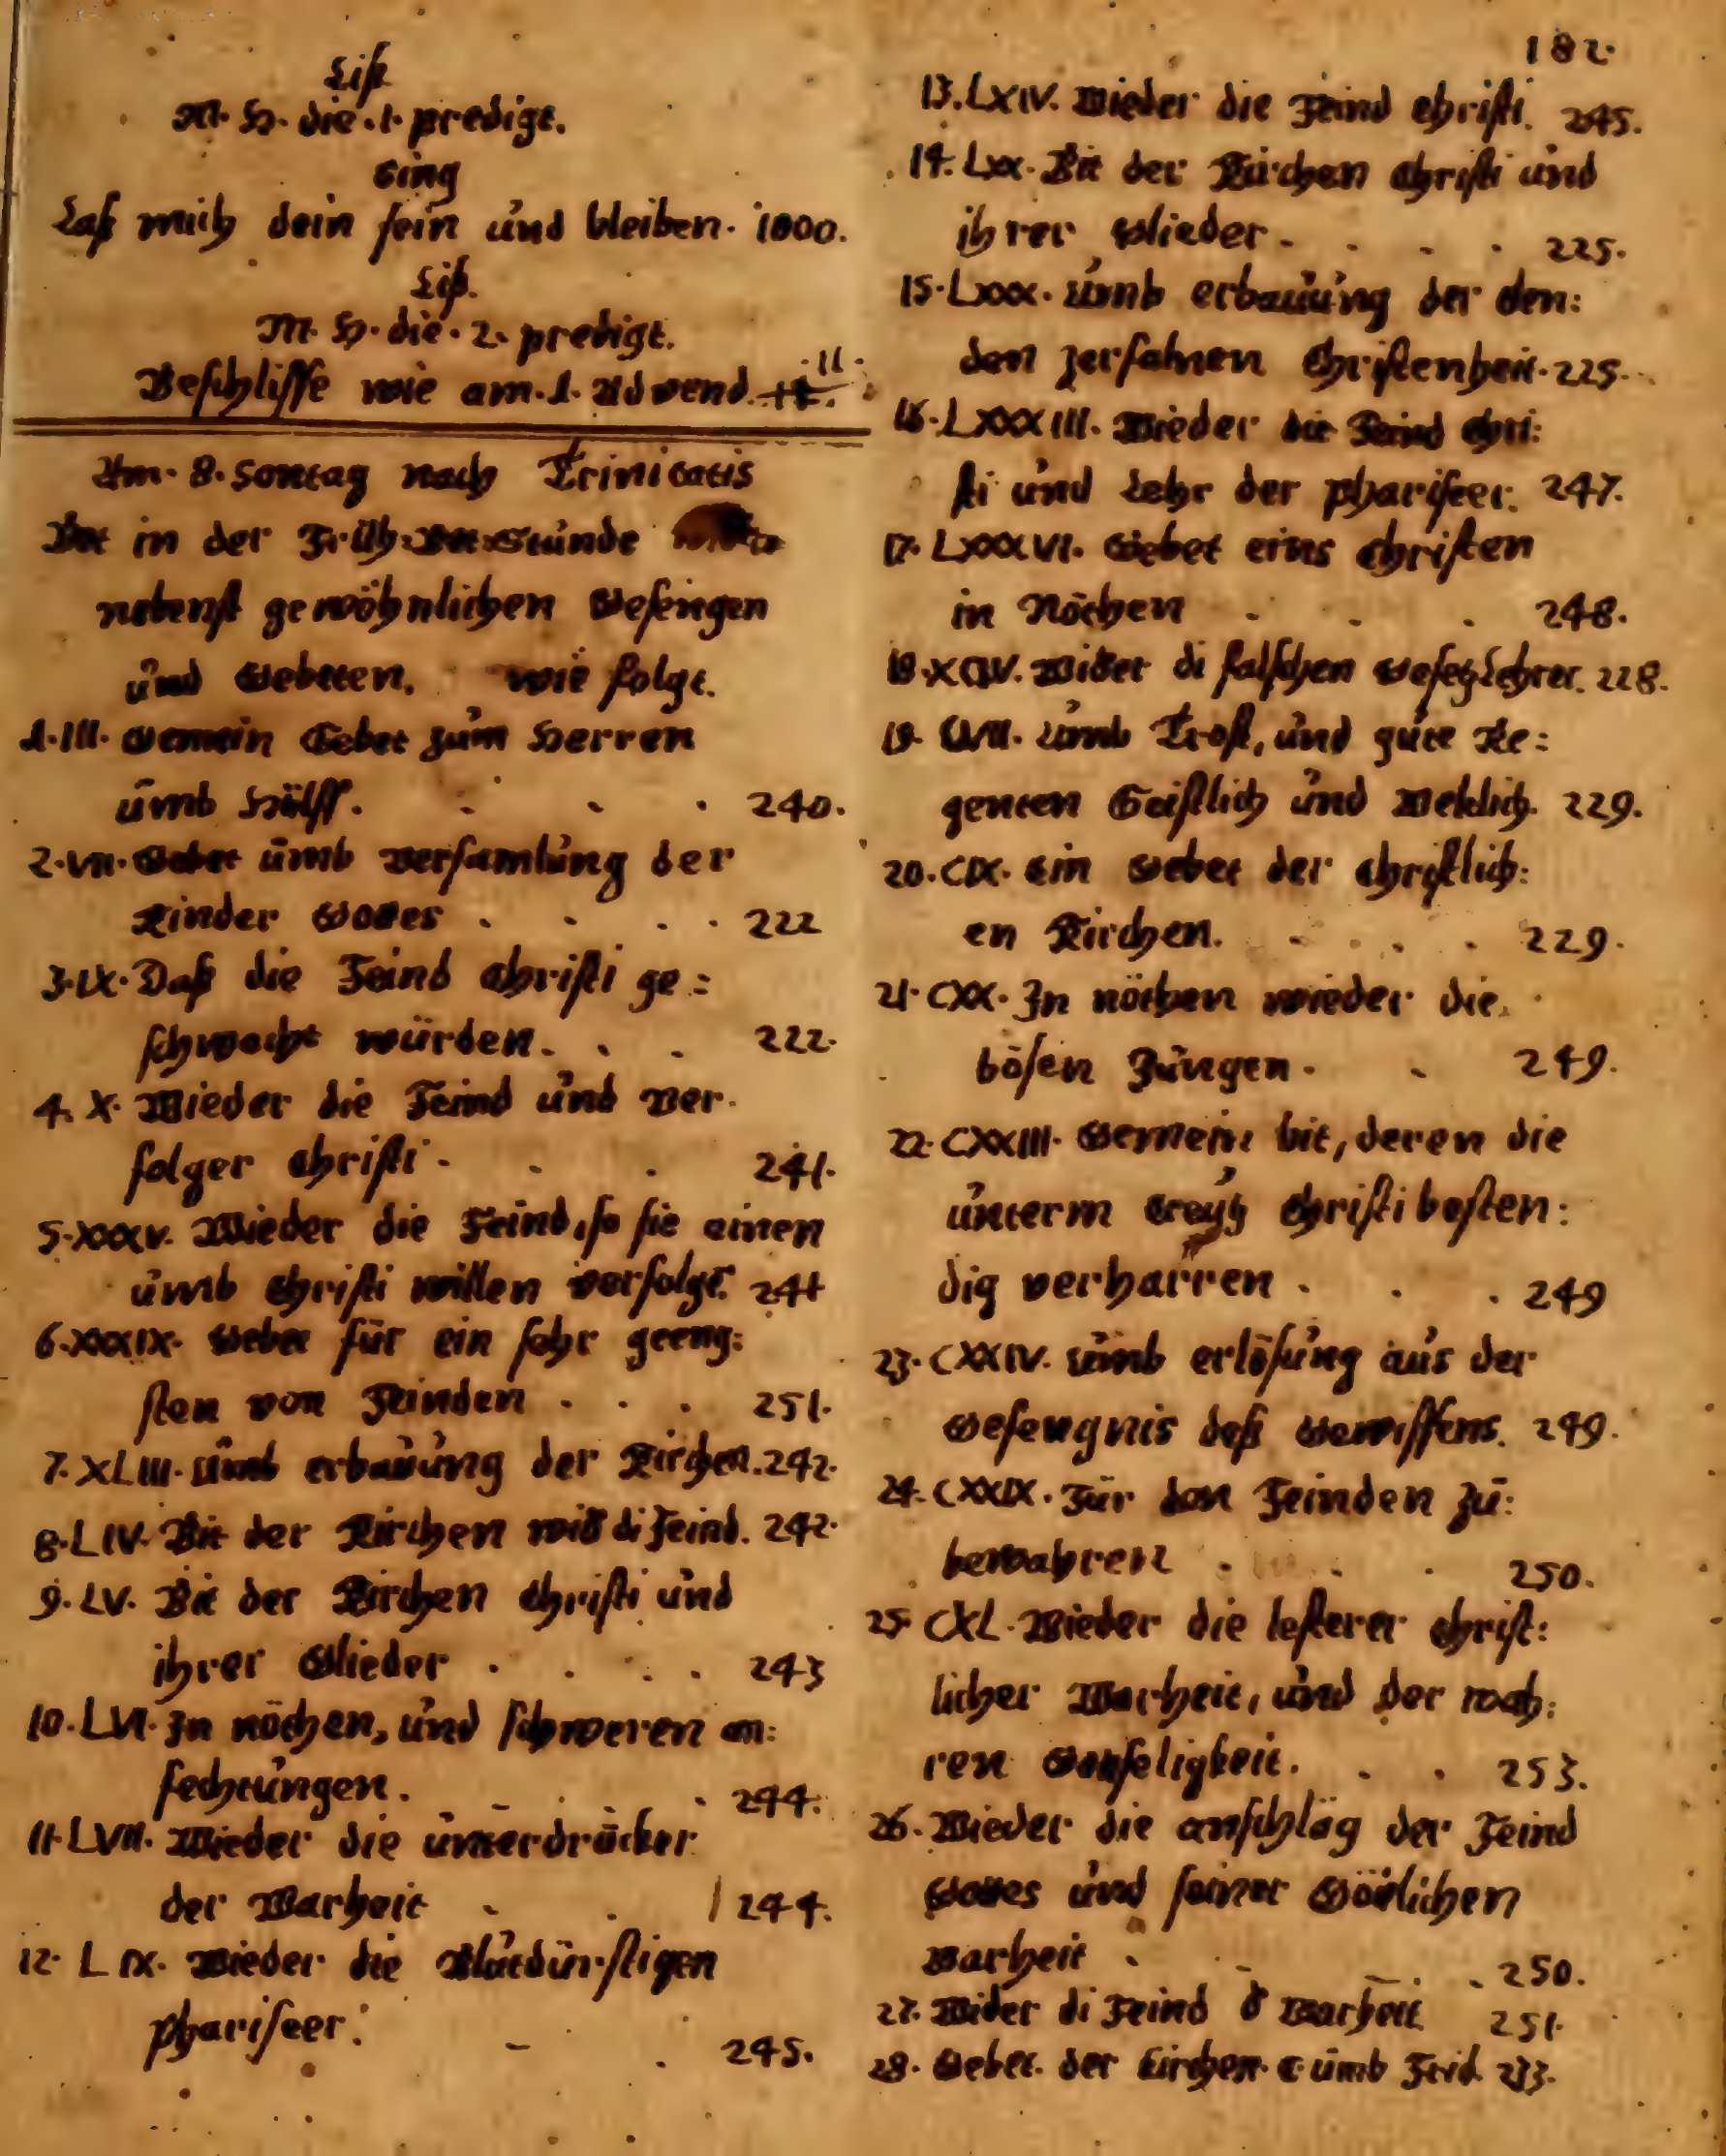 Liß
M. H. die .1. predigt.
Sing
Laß mich dein sein und bleiben. 1000.
Liß.
M. H. die .2. predigt.
Beschlisse wie am .1. Advend. 11.
Am .8. Sontag nach Trinitatis
Bet in der Früh-Bet-Stunde
nebenst gewöhnlichen Gesengen
und Gebeten, wie folgt.
1. III. Gemein Gebet zum Herren
umb Hülff. . . . 240.
2. VII. Gebet umb versamlung der
Kinder Gottes . . . . 222
3. IX. Daß die Feind Christi ge=
schwecht würden. . . 222.
4. X. Wieder die Feind und ver.
folger Christi . . . 241.
5. XXXV. Wieder die Feind, so sie einen
umb Christi willen verfolgt. 241
6. XXXIX. Gebet für ein sehr geeng:
sten von Feinden . . . 251.
7. XLIII. Umb erbauung der Kirchen. 242.
8. LIV. Bit der Kirchen wid di Feind. 242.
9. LV. Bit der Kirchen Christi und
ihrer Glieder . . . . 243
10. LVI. In nöthen, und schweren an:
fechtungen. . . . 244.
11. LVII. Wieder die unterdrücker
der Warheit . . 244.
12. LIX. Wieder die Blutdürstigen
phariseer. . . 245.
182.
13. LXIV. Wieder die Feind Christi. 245.
14. LXX. Bit der Kirchen Christi und
ihrer Glieder . . . . 225.
15. LXXX. Umb erbauung der elen:
den zerfalnen Christenheit. 225.
16. LXXXIII. Wieder die Feind Chri:
sti und Lehr der phariseer. 247.
17. LXXXVI. Gebet eins Christen
in Nöthen . . . 248.
18. XCIV. Wider di falschen Gesetzlehrer. 228.
19. CVII. Umb Trost, und gute Re=
genten Geistlich und Weltlich. 229.
20. CIX. Ein Gebet der Christlich:
en Kirchen. . . . . 229.
21. CXX. In nöthen wieder die
bösen Zungen . . 249.
22. CXXIII. Gemein bit, deren die
unterm Creutz Christi besten:
dig verharren . . . 249
23. CXXIV. Umb erlösung aus der
Gefengnis deß Gewissens. 249.
24. CXXIX. Für den Feinden zu:
bewahren . . . 250.
25. CXL. Wieder die lesterer Christ:
licher Warheit, und der wah:
ren Gotseligkeit. . . 253.
26. Wieder die anschläg der Feind
Gottes und seiner Götlichen
Warheit . . . . 250.
27. Wider di Feind d Warheit 251.
28. Gebet. der Kirchen. umb Frid. 233.